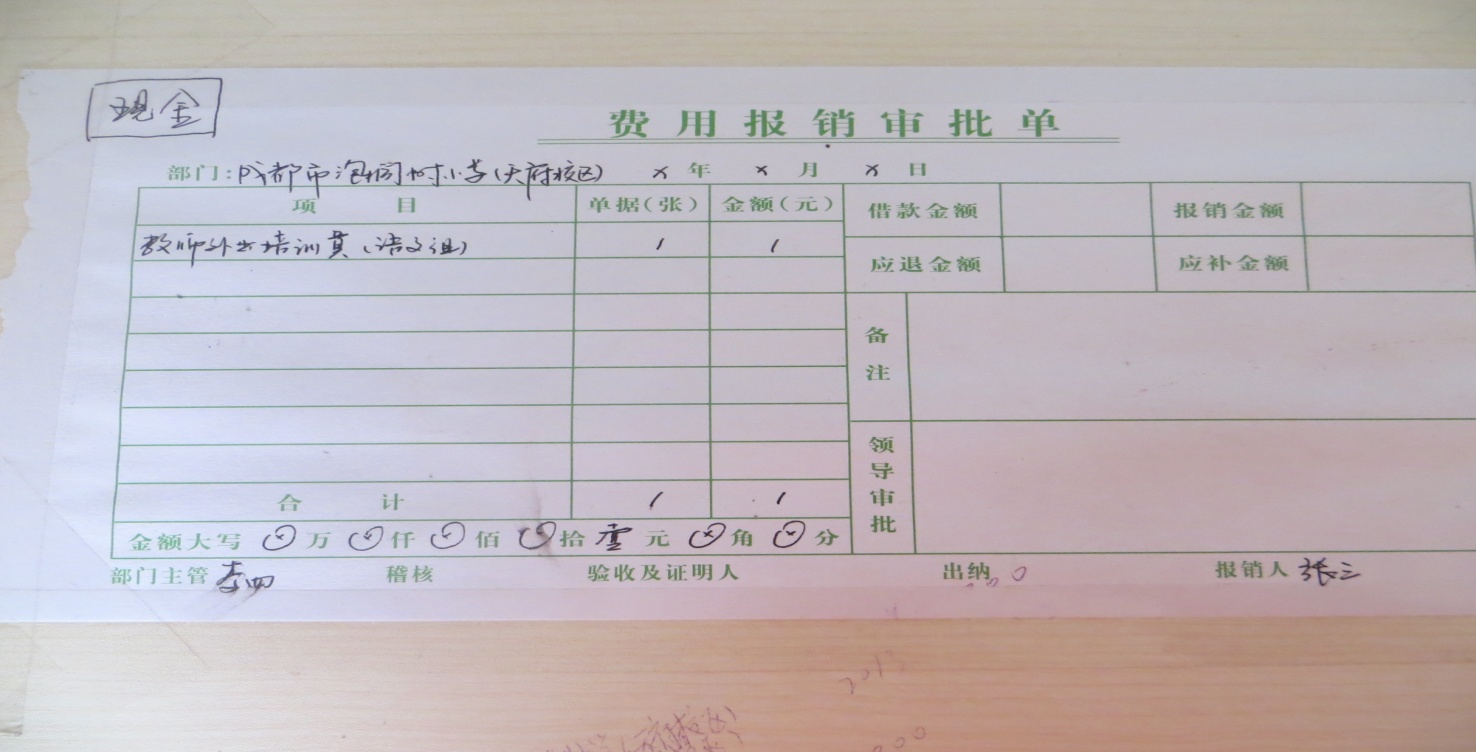 现金
费用报销审批单
部门:成都市泡桐树小学(天府校区) × 年 × 月 × 日
项目 单据(张) 金额(元) 借款金额 报销金额
教师外出培训费(语文组) 1 1
应退金额 应补金额
备注
领导审批
合计 1 1
金额大写 ⊗ 万 ⊗ 仟 ⊗ 佰 ⊗ 拾 壹 元 ⊗ 角 ⊗ 分
部门主管 李四 稽核 验收及证明人 出纳 报销人 张三